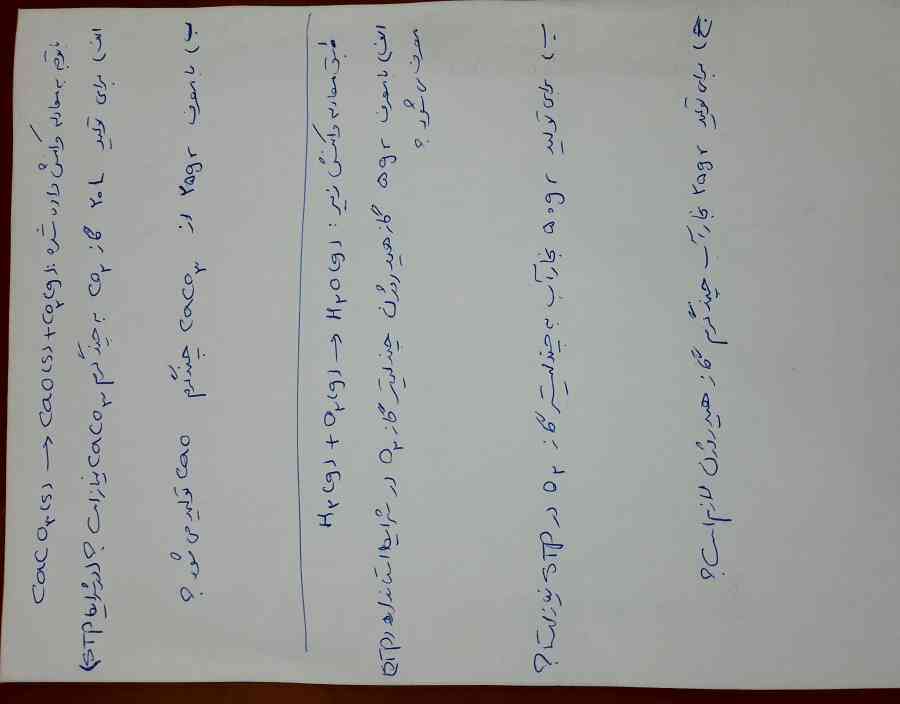 باتوجه به معادله واکنش داده شده: CaCO₃(s) → CaO(s) + CO₂(g)
الف) برای تولید ۲۰L گاز CO₂ به چند گرم CaCO₃ نیاز است؟ (در شرایط STP)
ب) با مصرف ۲۵gr از CaCO₃ چند گرم CaO تولید می شود؟
طبق معادله واکنش زیر: H₂(g) + O₂(g) → H₂O(g)
الف) با مصرف ۵gr گاز هیدروژن چند لیتر گاز O₂ در شرایط استاندارد (STP)
مصرف می شود؟
ب) برای تولید ۵۰gr بخار آب به چند لیتر گاز O₂ در STP نیاز است؟
ج) برای تولید ۲۵gr بخار آب چند گرم گاز هیدروژن لازم است؟